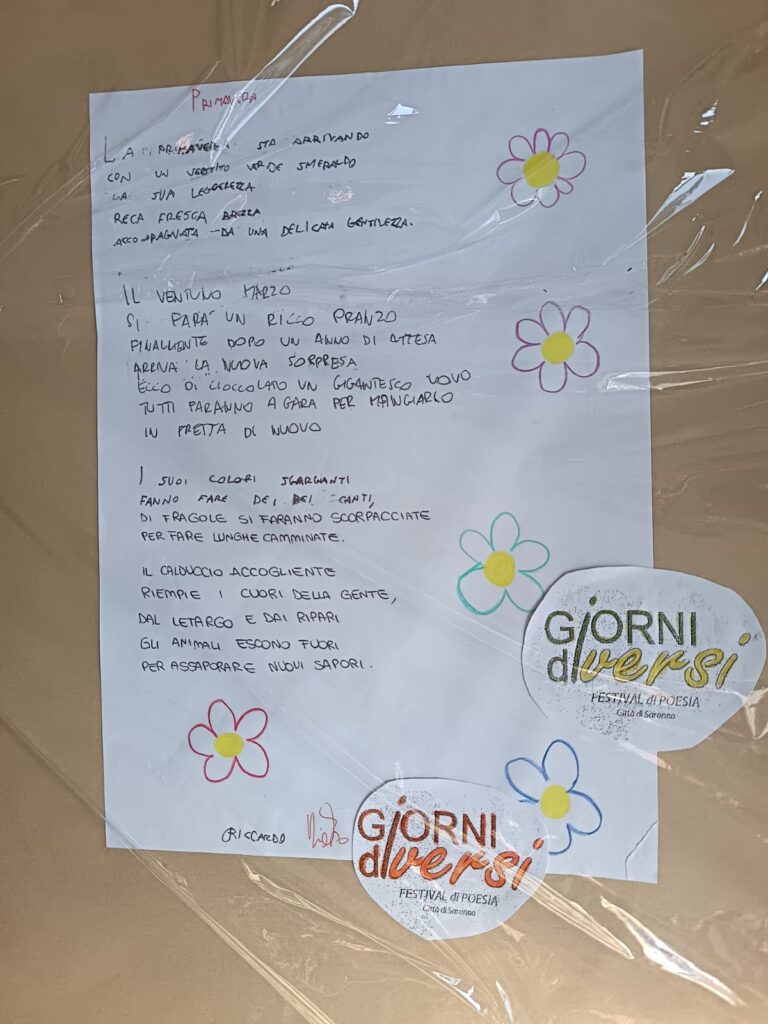 PRIMAVERA
LA PRIMAVERA STA ARRIVANDO
CON UN VESTITO VERDE SMERALDO
LA SUA LEGGEREZZA
RECA FRESCA BREZZA
ACCOMPAGNATA DA UNA DELICATA GENTILEZZA.
IL VENTUNO MARZO
SI FARÀ UN RICCO PRANZO
FINALMENTE DOPO UN ANNO DI ATTESA
ARRIVA LA NUOVA SORPRESA
ECCO DI CIOCCOLATO UN GIGANTESCO UOVO
TUTTI FARANNO A GARA PER MANGIARLO
IN FRETTA DI NUOVO
I SUOI COLORI SGARGIANTI
FANNO FARE DEI BEI CANTI,
DI FRAGOLE SI FARANNO SCORPACCIATE
PER FARE LUNGHE CAMMINATE.
IL CALDUCCIO ACCOGLIENTE
RIEMPIE I CUORI DELLA GENTE,
DAL LETARGO E DAI RIPARI
GLI ANIMALI ESCONO FUORI
PER ASSAPORARE NUOVI SAPORI.
GiORNI
diversi
FESTIVAL di POESIA
Città di Saronno
RICCARDO
GiORNI
diversi
FESTIVAL di POESIA
Città di Saronno